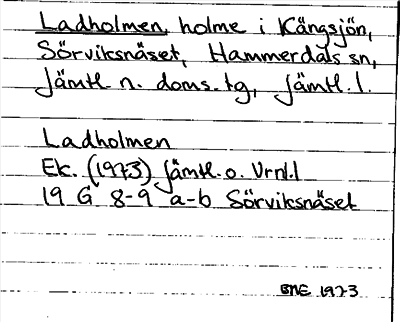 Ladholmen, holme i Kängsjön,
Sörviksnäset, Hammerdals sn,
Jämtl. n. doms. tg, Jämtl. l.
Ladholmen
Ek. (1973) Jämtl. o. Vrnl. l
19 G 8-9 a-b Sörviksnäset
BME 1973